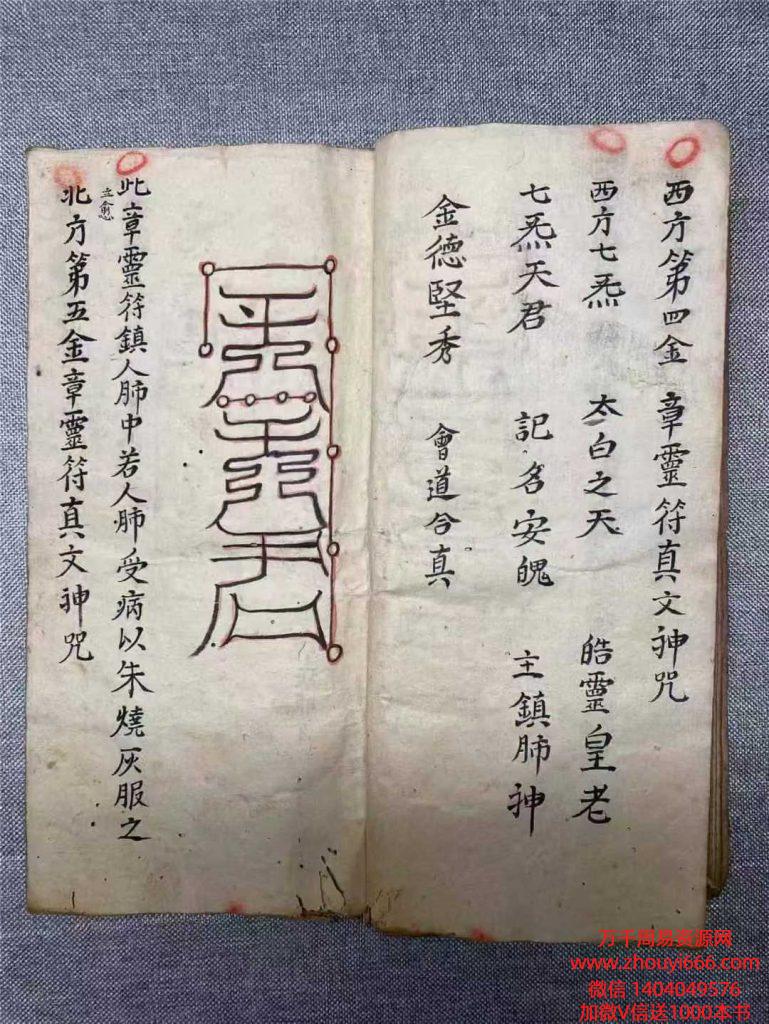 西方第四金章靈符真文神咒
西方七炁 太白之天 皓靈皇老
七炁天君 記名安魄 主鎮肺神
金德堅秀 會道合真
此章靈符鎮人肺中若人肺受病以朱燒灰服之
立愈
北方第五金章靈符真文神咒
万千周易资源网
www.zhouyi666.com
微信 1404049576
加微V信送1000本书